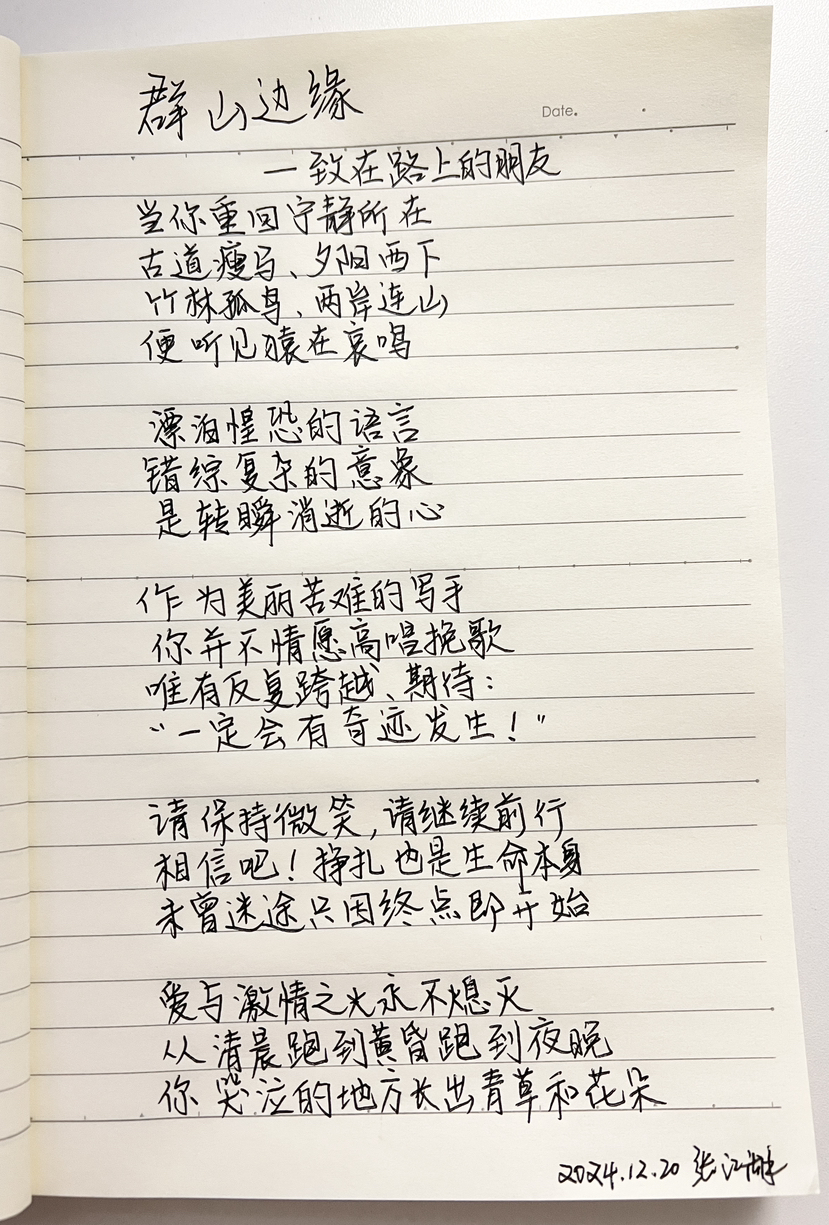 群山边缘
Date.
—致在路上的朋友
当你重回宁静所在
古道瘦马、夕阳西下
竹林孤鸟、两岸连山
便听见猿在哀鸣
漂泊惶恐的语言
错综复杂的意象
是转瞬消逝的心
作为美丽苦难的写手
你并不情愿高唱挽歌
唯有反复跨越、期待：
“一定会有奇迹发生！”
请保持微笑，请继续前行
相信吧！挣扎也是生命本身
未曾迷途只因终点即开始
爱与激情之火永不熄灭
从清晨跑到黄昏跑到夜晚
你哭泣的地方长出青草和花朵
2024.12.20 张江湖